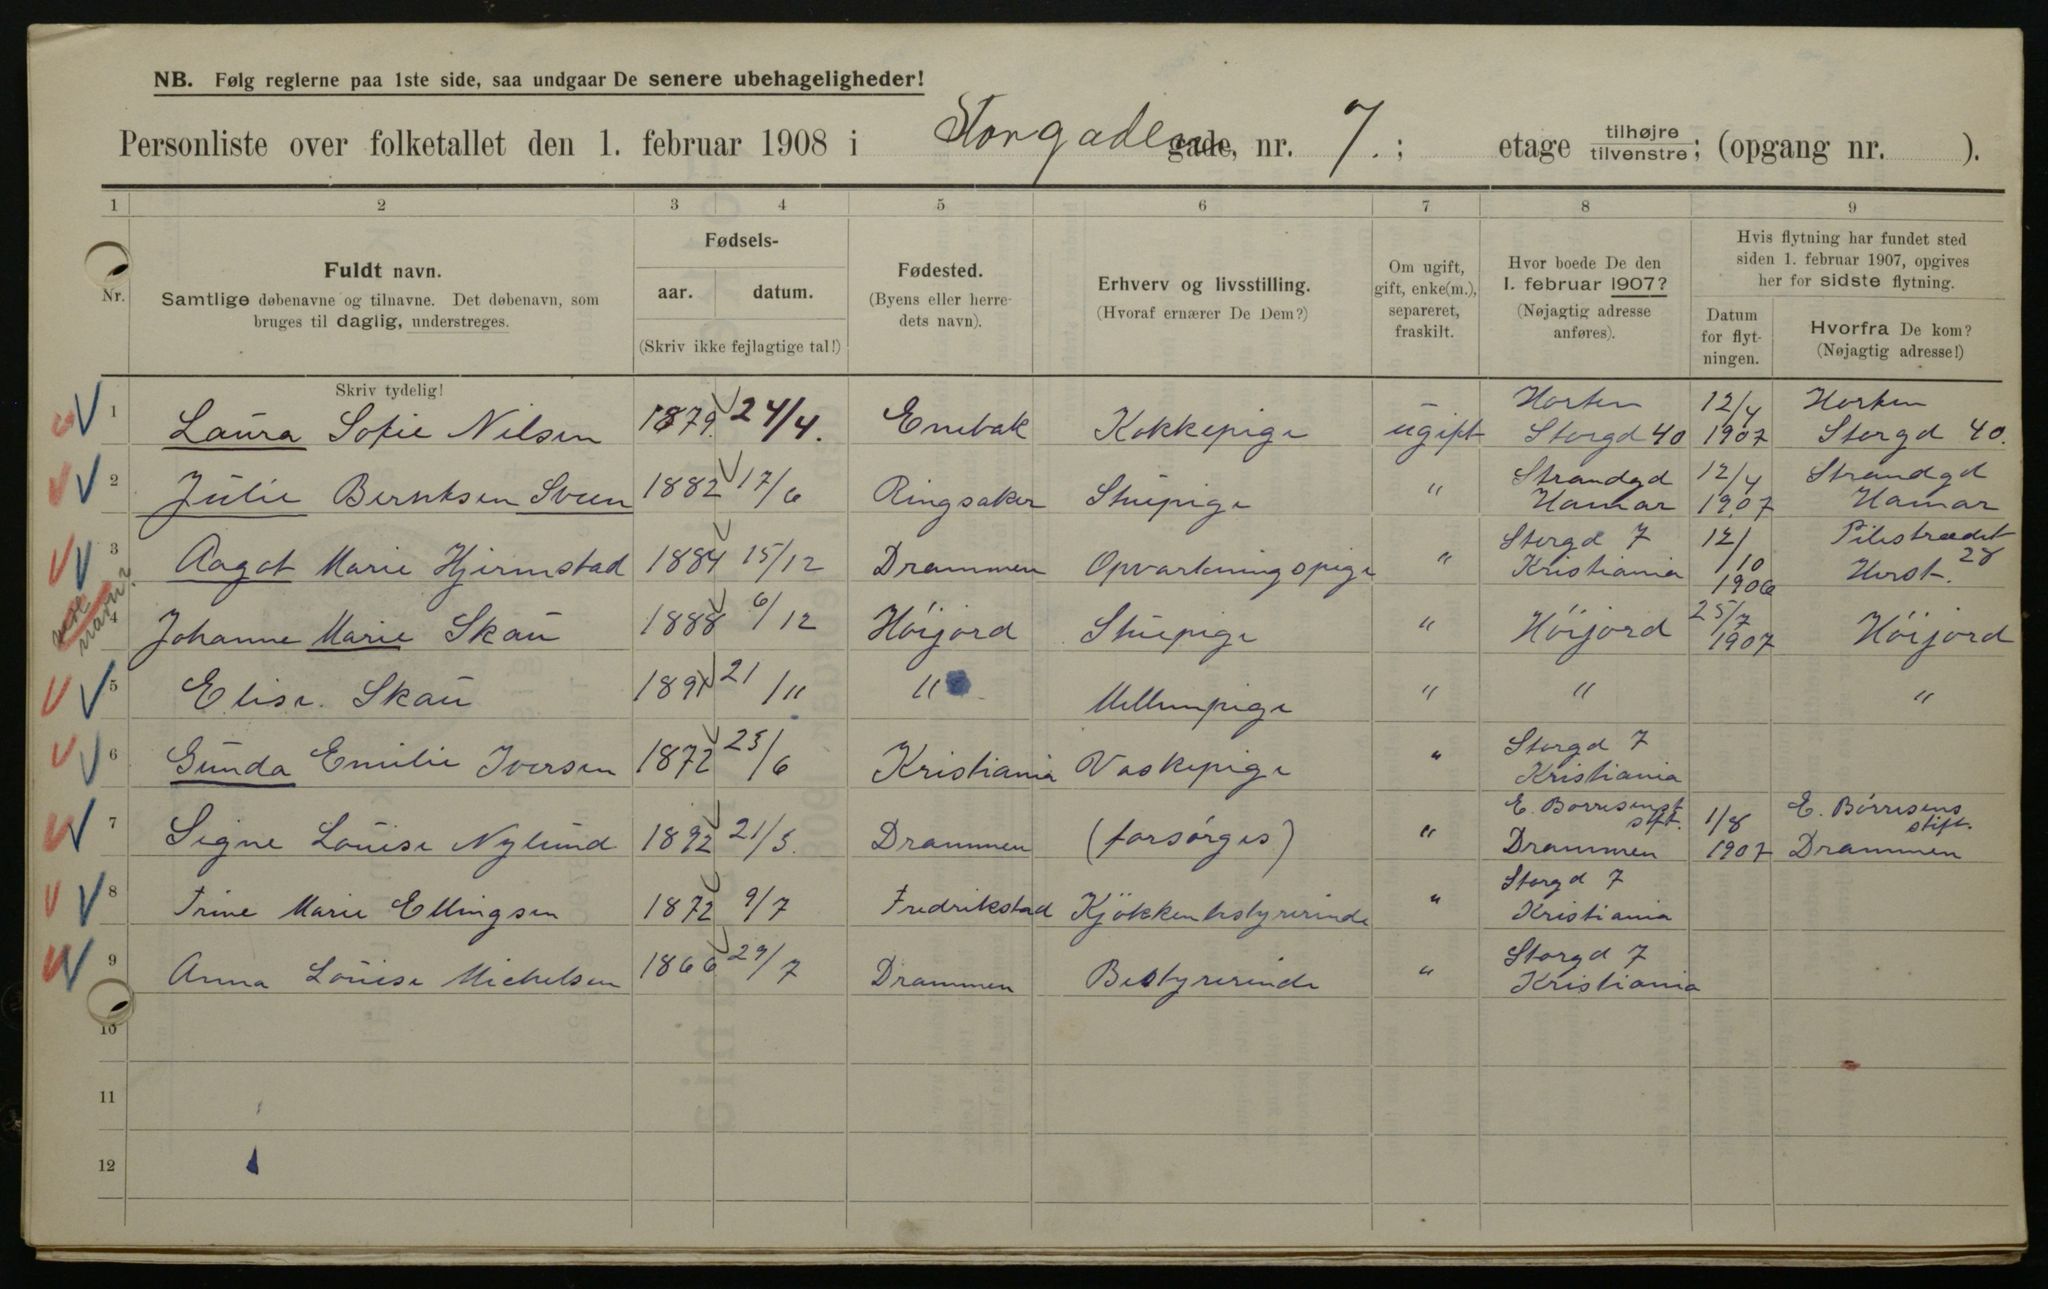 NB. Følg reglerne paa 1ste side, saa undgaar De senere ubehageligheder!
Personliste over folketallet den 1. februar 1908 i Storgaden gade, nr. 7. ; etage tilhøjre/tilvenstre; (opgang nr. ).
1 2 3 4 5 6 7 8 9
Nr.
Fuldt navn.
Samtlige døbenavne og tilnavne. Det døbenavn, som
bruges til daglig, understreges.
Skriv tydelig!
Fødsels-
aar. datum.
(Skriv ikke fejlagtige tal!)
Fødested.
(Byens eller herre-
dets navn).
Erhverv og livsstilling.
(Hvoraf ernærer De Dem?)
Om ugift,
gift, enke(m.),
separeret,
fraskilt.
Hvor boede De den
1. februar 1907?
(Nøjagtig adresse
anføres).
Hvis flytning har fundet sted
siden 1. februar 1907, opgives
her for sidste flytning.
Datum
for flyt-
ningen.
Hvorfra De kom?
(Nøjagtig adresse!)
1 Laura Sofie Nilsen 1879. 24/4. Enebak Kokkepige ugift Horten Storgd 40 12/4 1907 Horten Storgd 40.
2 Julie Berntsen Sveen 1882 17/6 Ringsaker Stuepige " Strandgd Hamar 12/4 1907 Strandgd Hamar
3 Aagot Marie Hjermstad 1884 15/12 Drammen Opvartningspige " Storgd 7 Kristiania 12/10 1906 Pilestrædet 28
4 Johanne Marie Skau 1888 6/12 Höijord Stuepige " Höijord 25/7 1907 Höijord
5 Elise. Skau 1891 21/11 " Mellempige " " "
6 Gunda Emilie Iversen 1872 25/6 Kristiania Vaskepige " Storgd 7 Kristiania
7 Signe Louise Nylund 1892 21/5. Drammen (forsørges) " Drammen 1/8 1907 E. Börresens stift. Drammen
8 Trine Marie Ellingsen 1872 9/7 Fredrikstad Kjökkenbestyrerinde " Storgd 7 Kristiania
9 Anna Louise Michelsen 1866 29/7 Drammen Bestyrerinde " Storgd 7 Kristiania
10
11
12